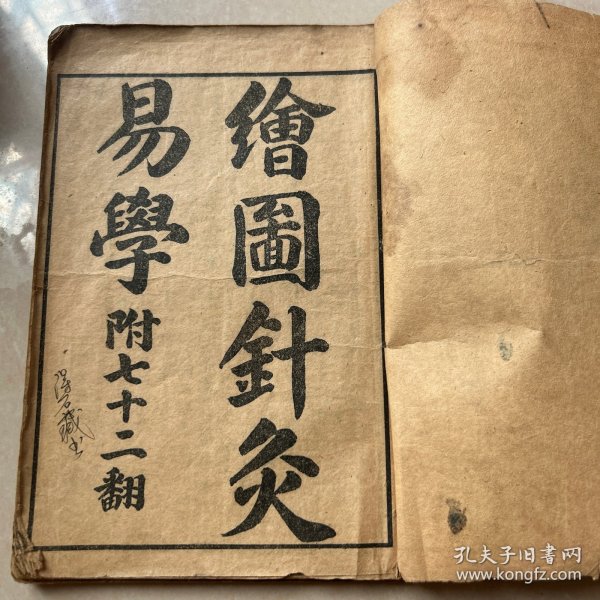 繪圖針灸
易學附七十二翻
孔夫子旧書网
www.kongfz.com